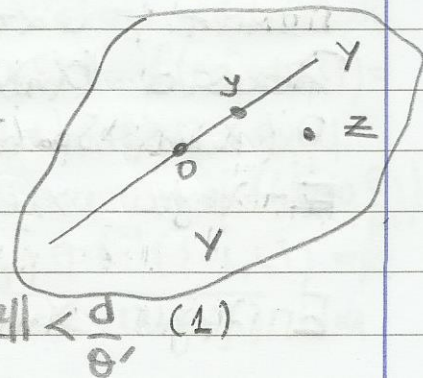 Y
y
z
0
Y
|| < d/θ' (1)